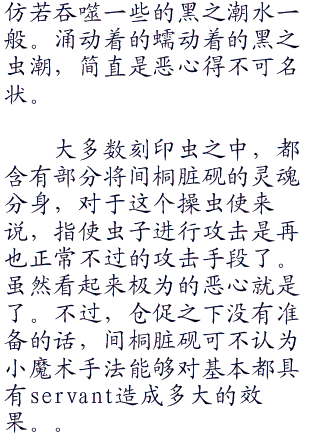 仿若吞噬一些的黑之潮水一
般。涌动着的蠕动着的黑之
虫潮，简直是恶心得不可名
状。
大多数刻印虫之中，都
含有部分将间桐脏砚的灵魂
分身，对于这个操虫使来
说，指使虫子进行攻击是再
也正常不过的攻击手段了。
虽然看起来极为的恶心就是
了。不过，仓促之下没有准
备的话，间桐脏砚可不认为
小魔术手法能够对基本都具
有servant造成多大的效
果。。